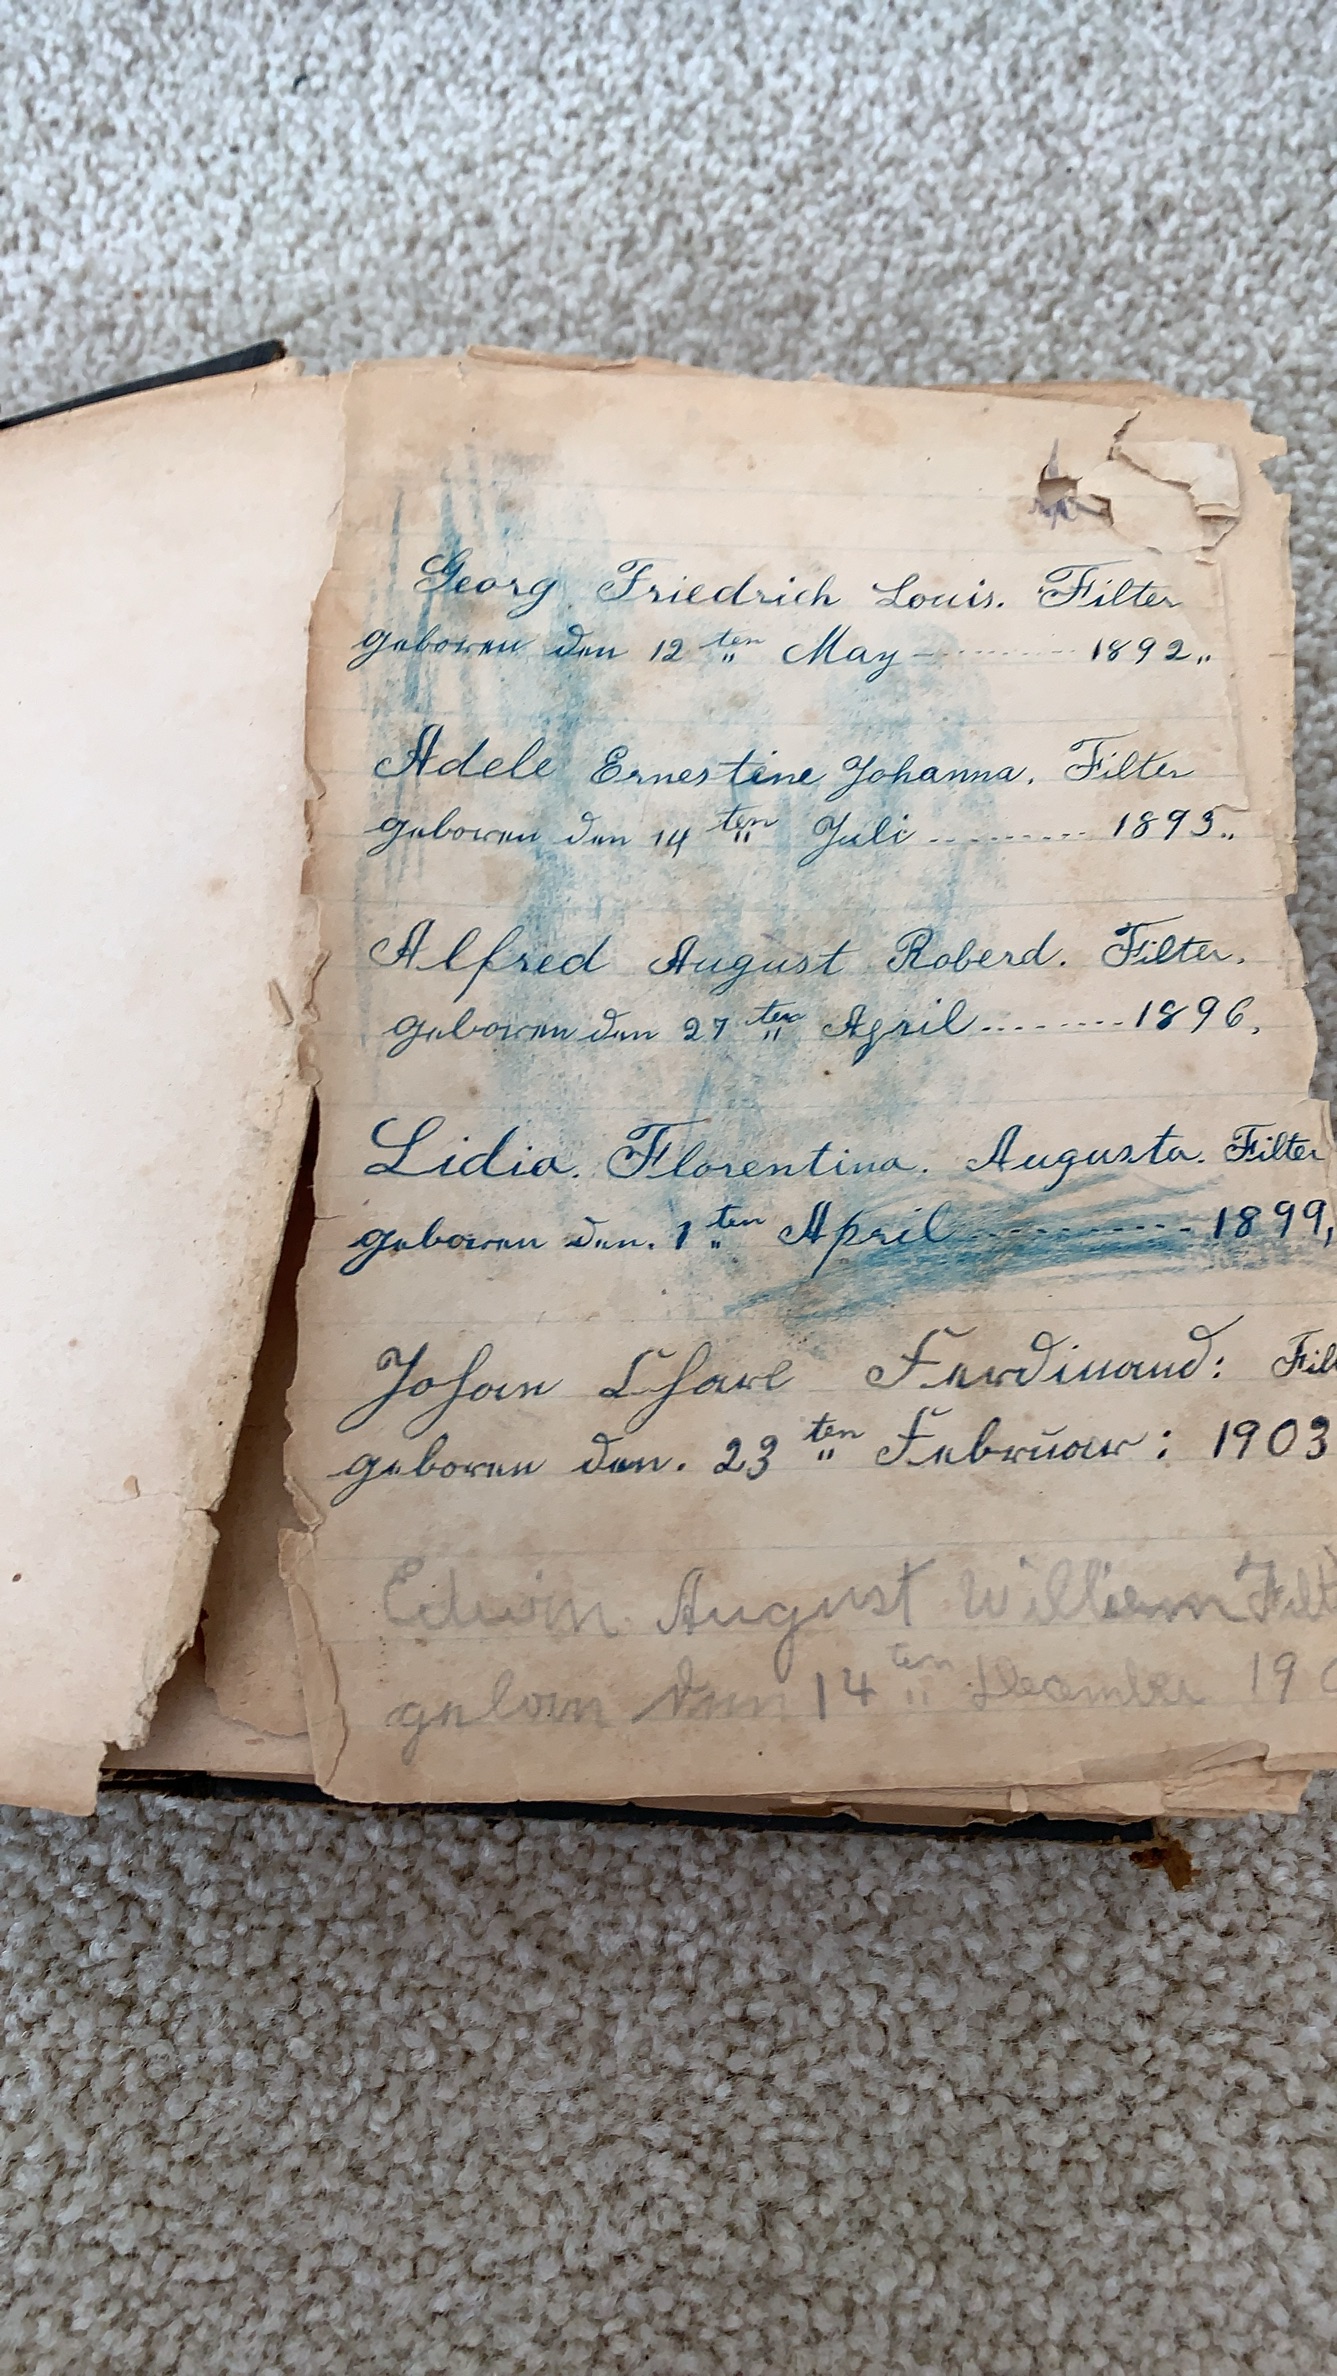 Georg Friedrich Louis. Filter
geboren den 12ten May 1892„
Adele Ernestine Johanna. Filter
geboren den 14ten Juli 1893„
Alfred August Roberd. Filter.
geboren den 27ten April 1896,
Lidia. Florentina. Augusta. Filter
geboren den. 1ten April 1899,
Johan Charl Ferdinand: Fil
geboren den. 23ten Februar: 1903
Edwin August William Filt
geborn den 14ten December 19